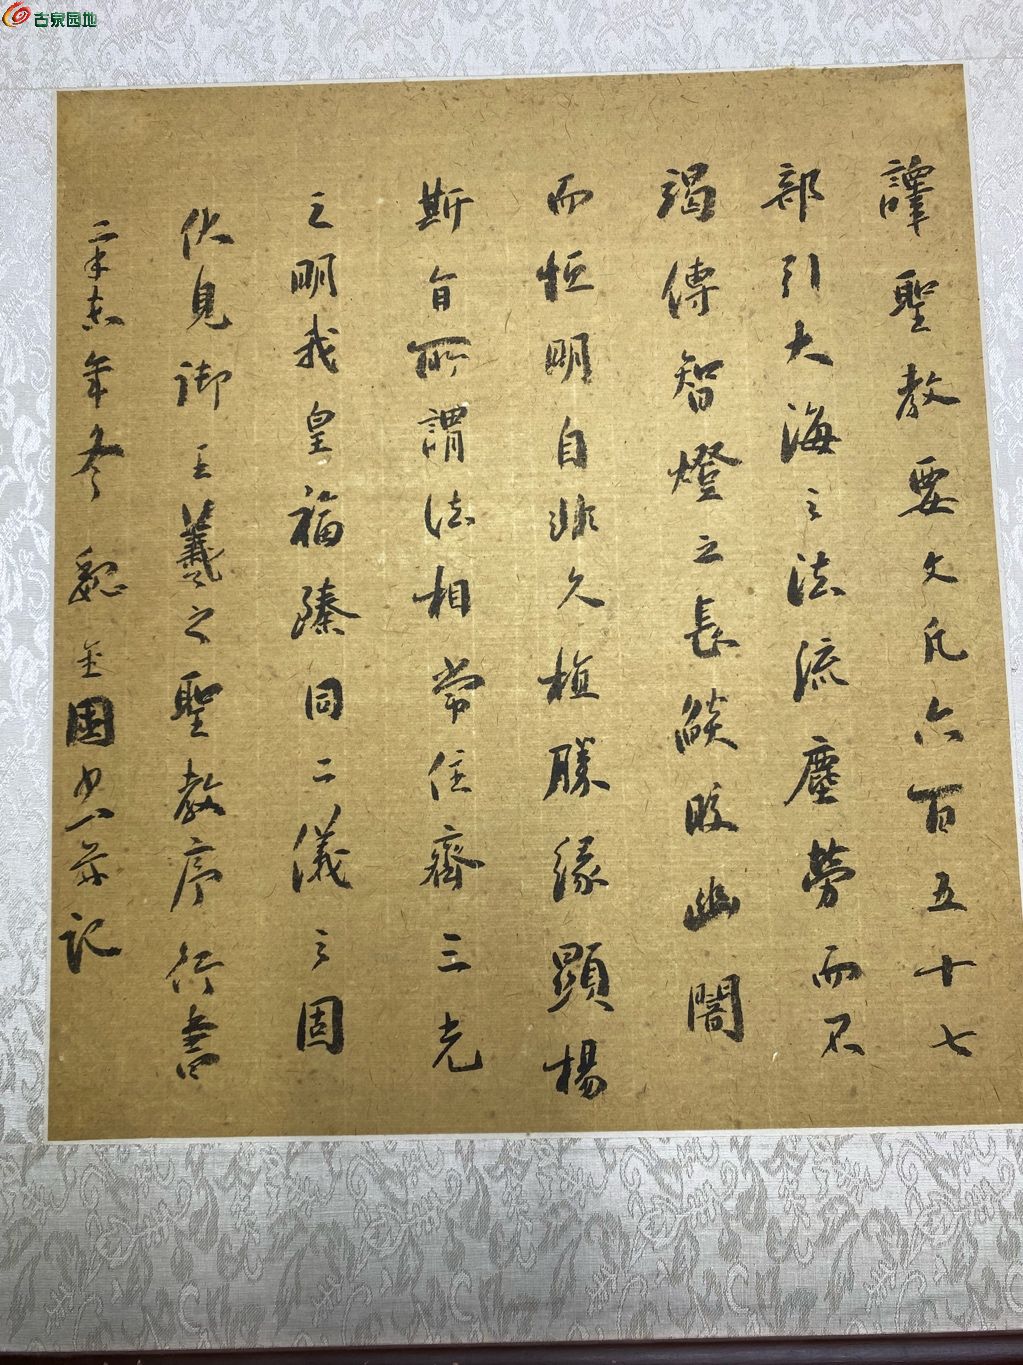 古泉园地
譯聖教要文凡六百五十七
部引大海之法流塵勞而不
竭傳智燈之長燄皎幽闇
而恒明自非久植勝緣顯楊
斯旨所謂法相常住齊三光
之明我皇福臻同二儀之固
伏見御王羲之聖教序行書
年冬國并記